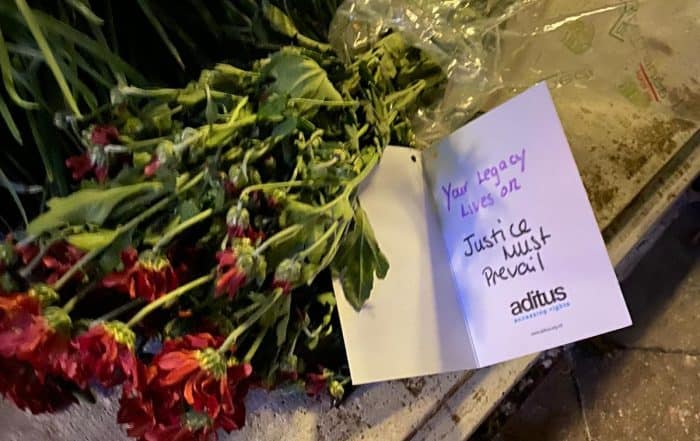 Your Legacy
Lives on
Justice
Must
Prevail
aditus
accessing rights
www.aditus.org.mt